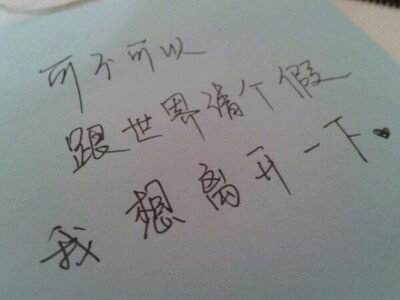 可不可以
跟世界请个假
我想离开一下